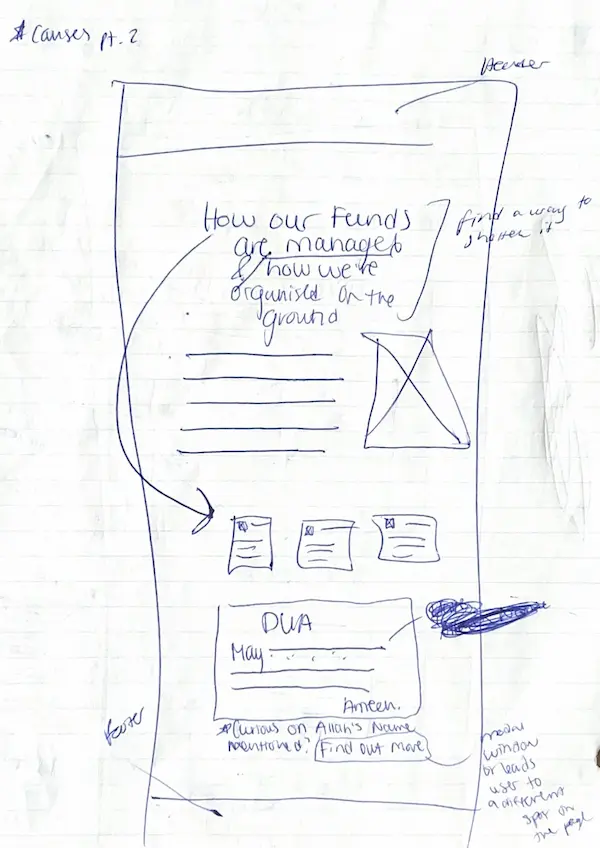 * Causes pt. 2
Header
How our Funds
are managed
& how we're
organised on the
ground
find a way to
shorten it
DUA
May
Ameen.
* Curious on Allah's Name
mentioned? Find out more
footer
modal
window
or leads
user to
a different
spot on
the page